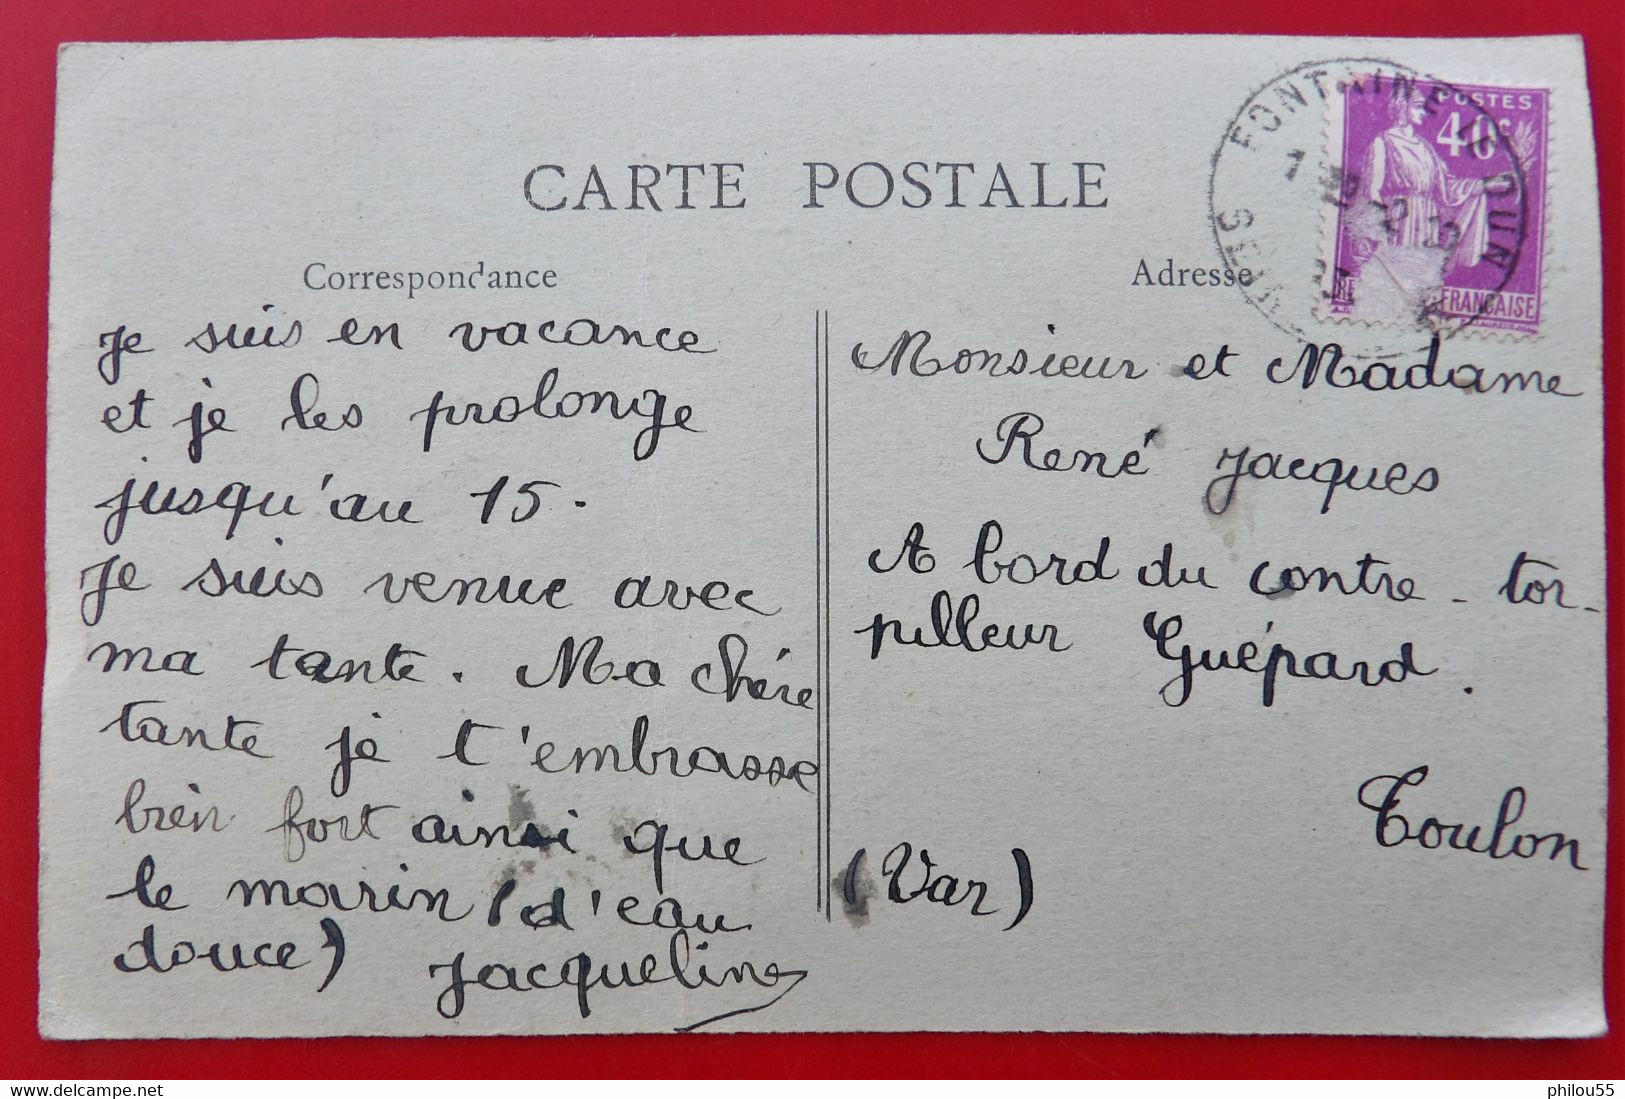 CARTE POSTALE
Correspondance
Adresse
FONTAINE LE DUN
POSTES
40c
FRANÇAISE
Je suis en vacance
et je les prolonge
jusqu'au 15.
Je suis venue avec
ma tante. Ma chére
tante je t'embrasse
bien fort ainsi que
le marin (d'eau
douce) Jacqueline
Monsieur et Madame
René Jacques
A bord du contre-tor-
pilleur Guépard.
Toulon
(Var)
www.delcampe.net
philou55